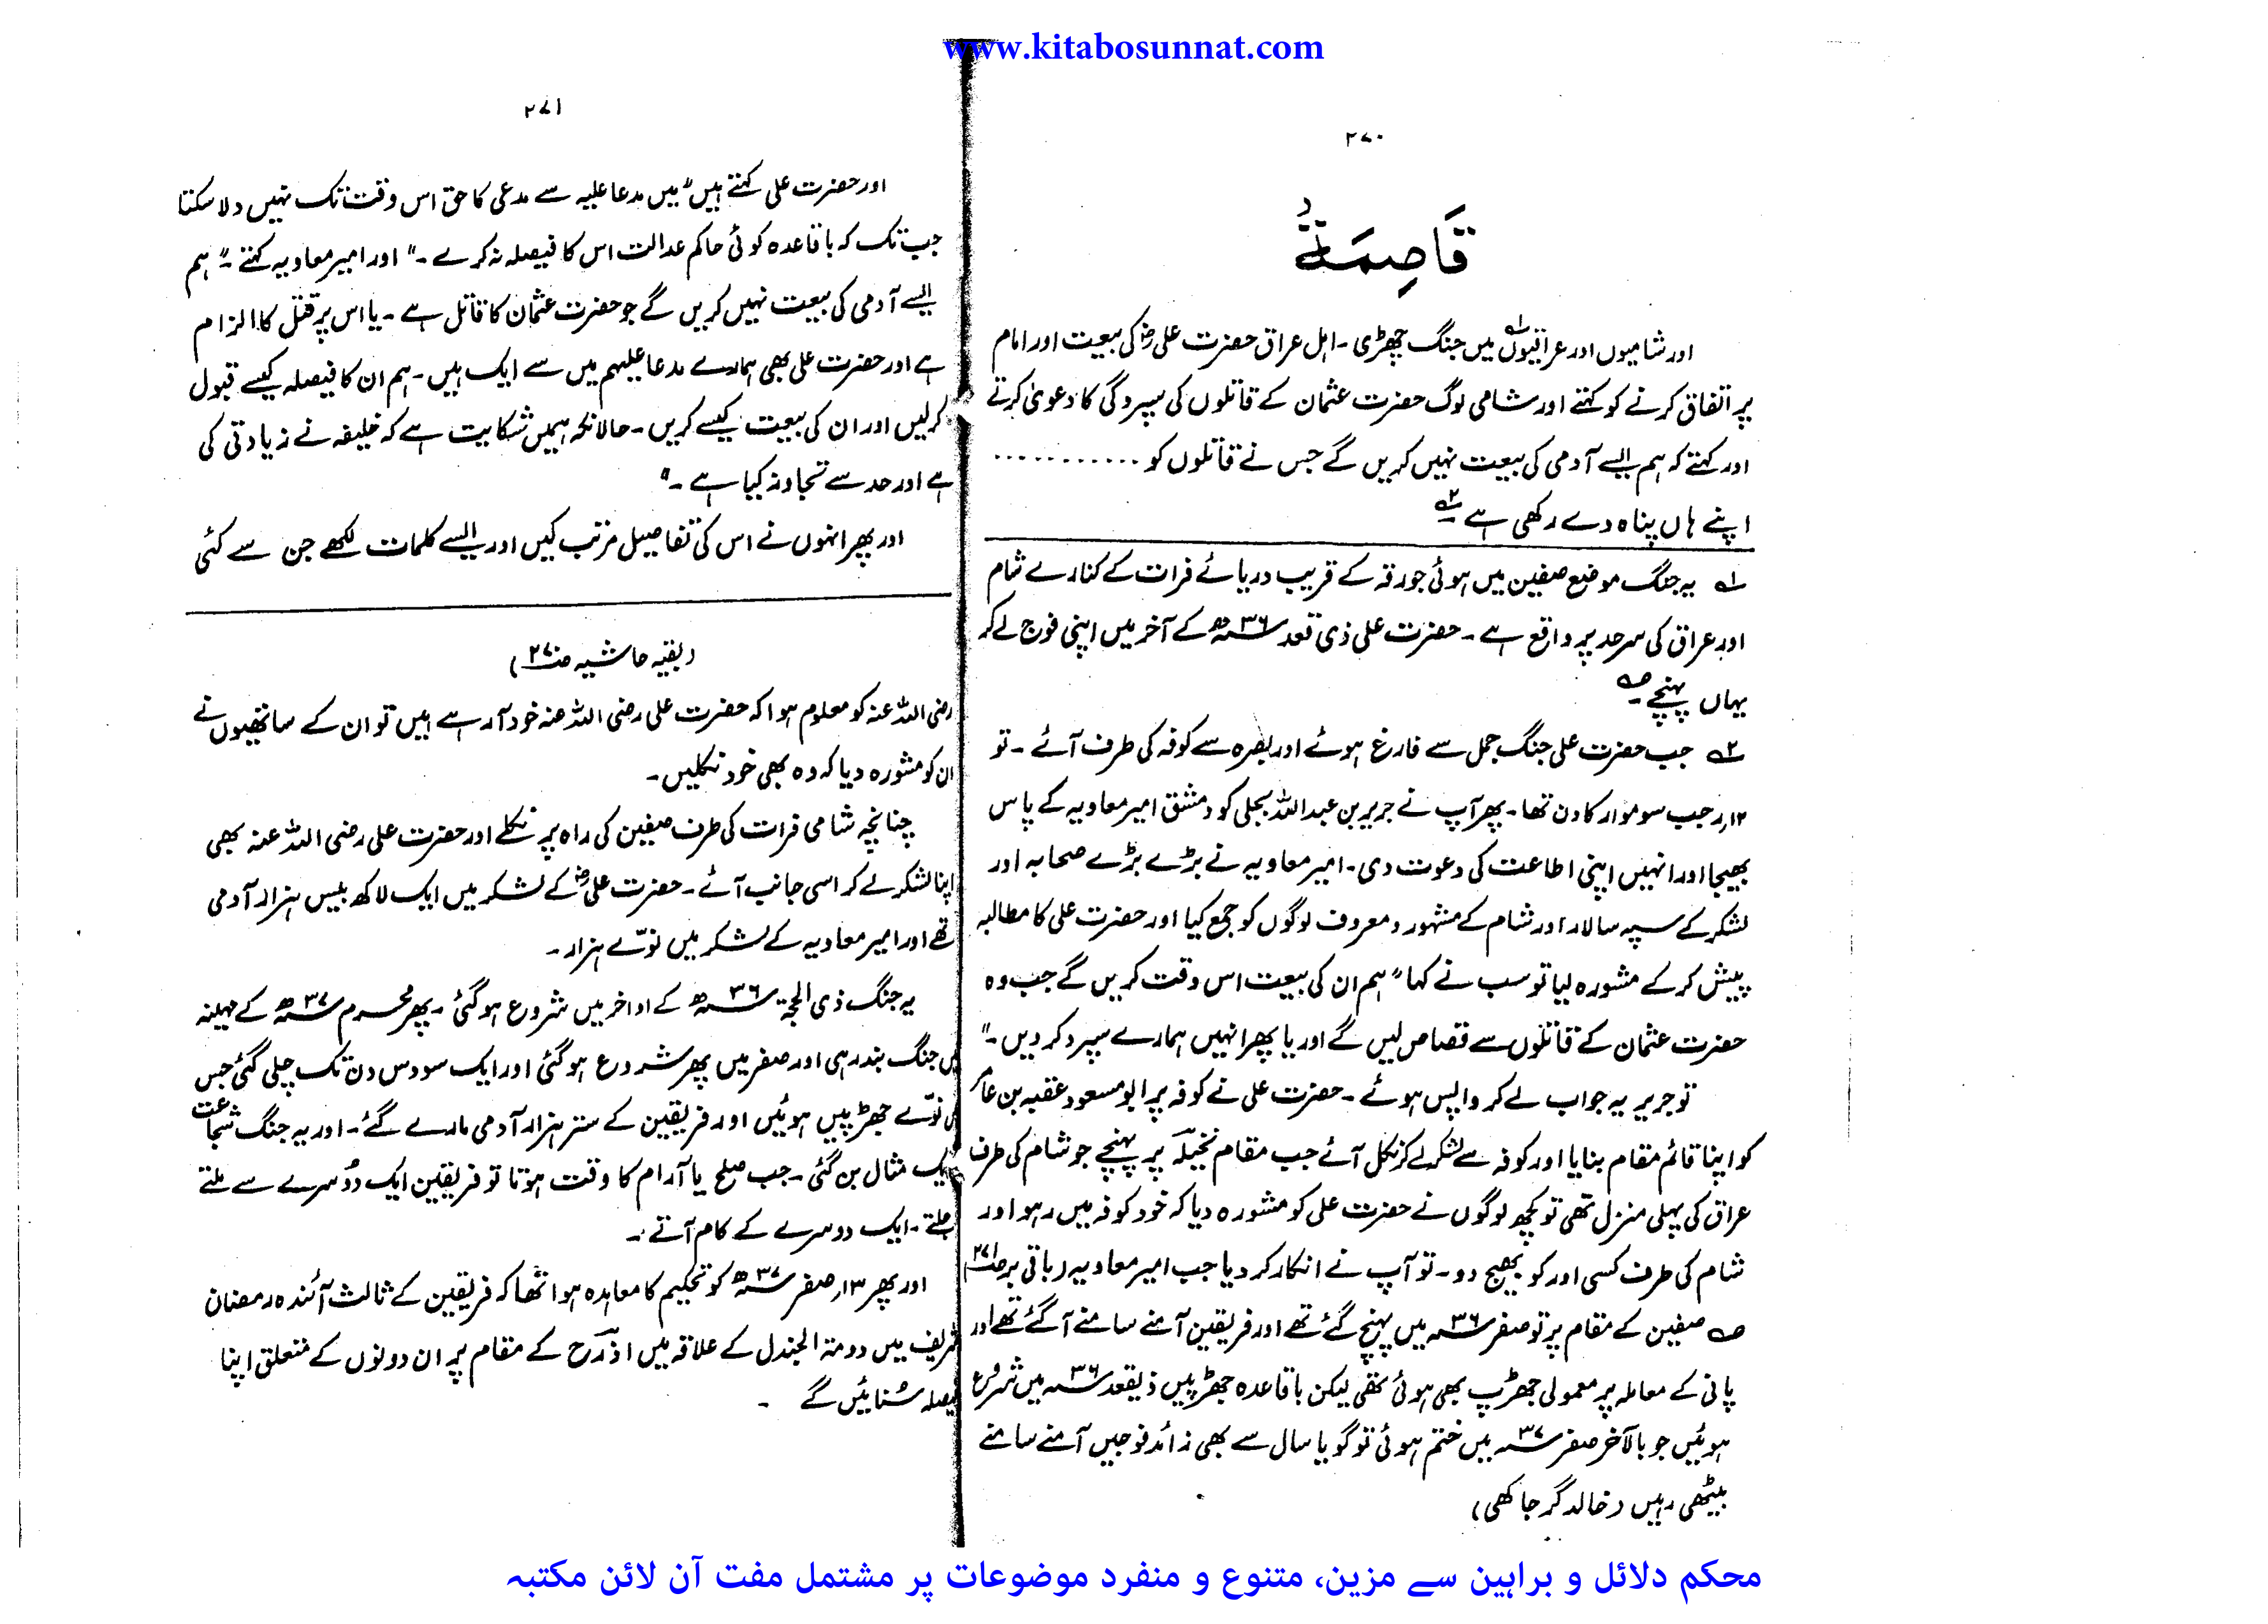 www.kitabosunnat.com
۲۷۰
قَاصِمَةٌ
اور شامیوں اور عراقیوں۱ میں جنگ چھڑی۔ اہل عراق حضرت علیؓ کی بیعت اور امام
پر اتفاق کرنے کو کہتے اور شامی لوگ حضرت عثمان کے قاتلوں کی سپردگی کا دعویٰ کرتے
اور کہتے کہ ہم ایسے آدمی کی بیعت نہیں کریں گے جس نے قاتلوں کو ............
اپنے ہاں پناہ دے رکھی ہے۲
۱ یہ جنگ موضع صفین میں ہوئی جو رقہ کے قریب دریائے فرات کے کنارے شام
اور عراق کی سرحد پر واقع ہے۔ حضرت علی ذی قعد ۳۶ھ کے آخر میں اپنی فوج لے کر
یہاں پہنچے ص
۲ جب حضرت علی جنگ جمل سے فارغ ہوئے اور بصرہ سے کوفہ کی طرف آئے۔ تو
۱۲؍رجب سوموار کا دن تھا۔ پھر آپ نے جریر بن عبداللہ بجلی کو دمشق امیر معاویہ کے پاس
بھیجا اور انہیں اپنی اطاعت کی دعوت دی۔ امیر معاویہ نے بڑے بڑے صحابہ اور
لشکر کے سپہ سالار اور شام کے مشہور و معروف لوگوں کو جمع کیا اور حضرت علی کا مطالبہ
پیش کر کے مشورہ لیا تو سب نے کہا "ہم ان کی بیعت اس وقت کریں گے جب وہ
حضرت عثمان کے قاتلوں سے قصاص لیں گے اور یا پھر انہیں ہمارے سپرد کر دیں۔"
تو جریر یہ جواب لے کر واپس ہوئے۔ حضرت علی نے کوفہ پر ابو مسعود عقبہ بن عامر
کو اپنا قائم مقام بنایا اور کوفہ سے لشکر لے کر نکل آئے جب مقام نخیلہ پر پہنچے جو شام کی طرف
عراق کی پہلی منزل تھی تو کچھ لوگوں نے حضرت علی کو مشورہ دیا کہ خود کوفہ میں رہو اور
شام کی طرف کسی اور کو بھیج دو۔ تو آپ نے انکار کر دیا جب امیر معاویہ (باقی بر ص۲۷۱)
ص صفین کے مقام پر تو صفر ۳۶ھ میں پہنچ گئے تھے اور فریقین آمنے سامنے آ گئے تھے اور
پانی کے معاملہ پر معمولی جھڑپ بھی ہوئی تھی لیکن باقاعدہ جھڑپیں ذیقعد ۳۶ھ میں شروع
ہوئیں جو بالآخر صفر ۳۷ھ میں ختم ہوئی تو گویا سال سے بھی زائد فوجیں آمنے سامنے
بیٹھی رہیں (خالد گرجاکھی)
۲۷۱
اور حضرت علی کہتے ہیں "میں مدعا علیہ سے مدعی کا حق اس وقت تک نہیں دلا سکتا
جب تک کہ باقاعدہ کوئی حاکم عدالت اس کا فیصلہ نہ کرے۔" اور امیر معاویہ کہتے۔ "ہم
ایسے آدمی کی بیعت نہیں کریں گے جو حضرت عثمان کا قاتل ہے۔ یا اس پر قتل کا الزام
ہے اور حضرت علی بھی ہمارے مدعا علیہم میں سے ایک ہیں۔ ہم ان کا فیصلہ کیسے قبول
کرلیں اور ان کی بیعت کیسے کریں۔ حالانکہ ہمیں شکایت ہے کہ خلیفہ نے زیادتی کی
ہے اور حد سے تجاوز کیا ہے۔"
اور پھر انہوں نے اس کی تفاصیل مرتب کیں اور ایسے کلمات لکھے جن سے کئی
(بقیہ حاشیہ ص۲۷۰)
رضی اللہ عنہ کو معلوم ہوا کہ حضرت علی رضی اللہ عنہ خود آ رہے ہیں تو ان کے ساتھیوں نے
ان کو مشورہ دیا کہ وہ بھی خود نکلیں۔
چنانچہ شامی فرات کی طرف صفین کی راہ پر نکلے اور حضرت علی رضی اللہ عنہ بھی
اپنا لشکر لے کر اسی جانب آئے۔ حضرت علیؓ کے لشکر میں ایک لاکھ بیس ہزار آدمی
تھے اور امیر معاویہ کے لشکر میں نوّے ہزار۔
یہ جنگ ذی الحجۃ ۳۶ھ کے اواخر میں شروع ہو گئی۔ پھر محرم ۳۷ھ کے مہینہ
میں جنگ بند رہی اور صفر میں پھر شروع ہو گئی اور ایک سو دس دن تک چلی گئی جس
میں نوّے جھڑپیں ہوئیں اور فریقین کے ستر ہزار آدمی مارے گئے۔ اور یہ جنگ شجاعت
ایک مثال بن گئی۔ جب صلح یا آرام کا وقت ہوتا تو فریقین ایک دُوسرے سے ملتے
جلتے۔ ایک دوسرے کے کام آتے۔
اور پھر ۱۳؍صفر ۳۷ھ کو تحکیم کا معاہدہ ہوا تھا کہ فریقین کے ثالث آئندہ رمضان
شریف میں دومۃ الجندل کے علاقہ میں اذرح کے مقام پر ان دونوں کے متعلق اپنا
فیصلہ سُنائیں گے۔
محکم دلائل و براہین سے مزین، متنوع و منفرد موضوعات پر مشتمل مفت آن لائن مکتبہ